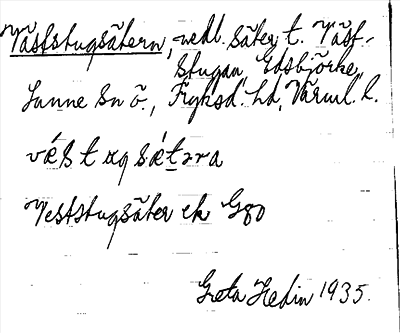 Väststugsätern, nedl. säter t. Väst-
stugan, Edsbjörke,
Sunne sn ö., Fryksd. hd, Värml. l.
vǽstɷgsǽtɽra
Veststugsäter ek Gg0
Greta Hedin 1935.